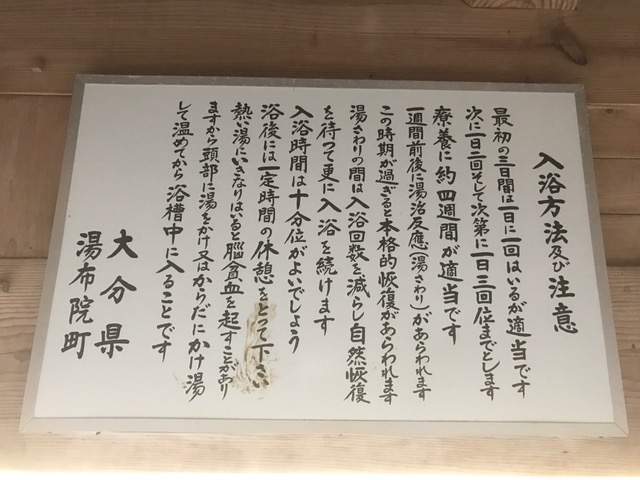 入浴方法及び注意
最初の三日間は一日に一回はいるが適当です
次に一日二回そして次第に一日三回位までとします
療養に約四週間が適当です
一週間前後に湯治反應(湯さわり)があらわれます
この時期が過ぎると本格的恢復があらわれます
湯さわりの間は入浴回数を減らし自然恢復
を待つて更に入浴を続けます
入浴時間は十分位がよいでしよう
浴後には一定時間の休憩をとつて下さい
熱い湯にいきなりはいると脳貧血を起すことがあり
ますから頭部に湯をかけ又はからだにかけ湯
して温めてから浴槽中に入ることです
大分県
湯布院町